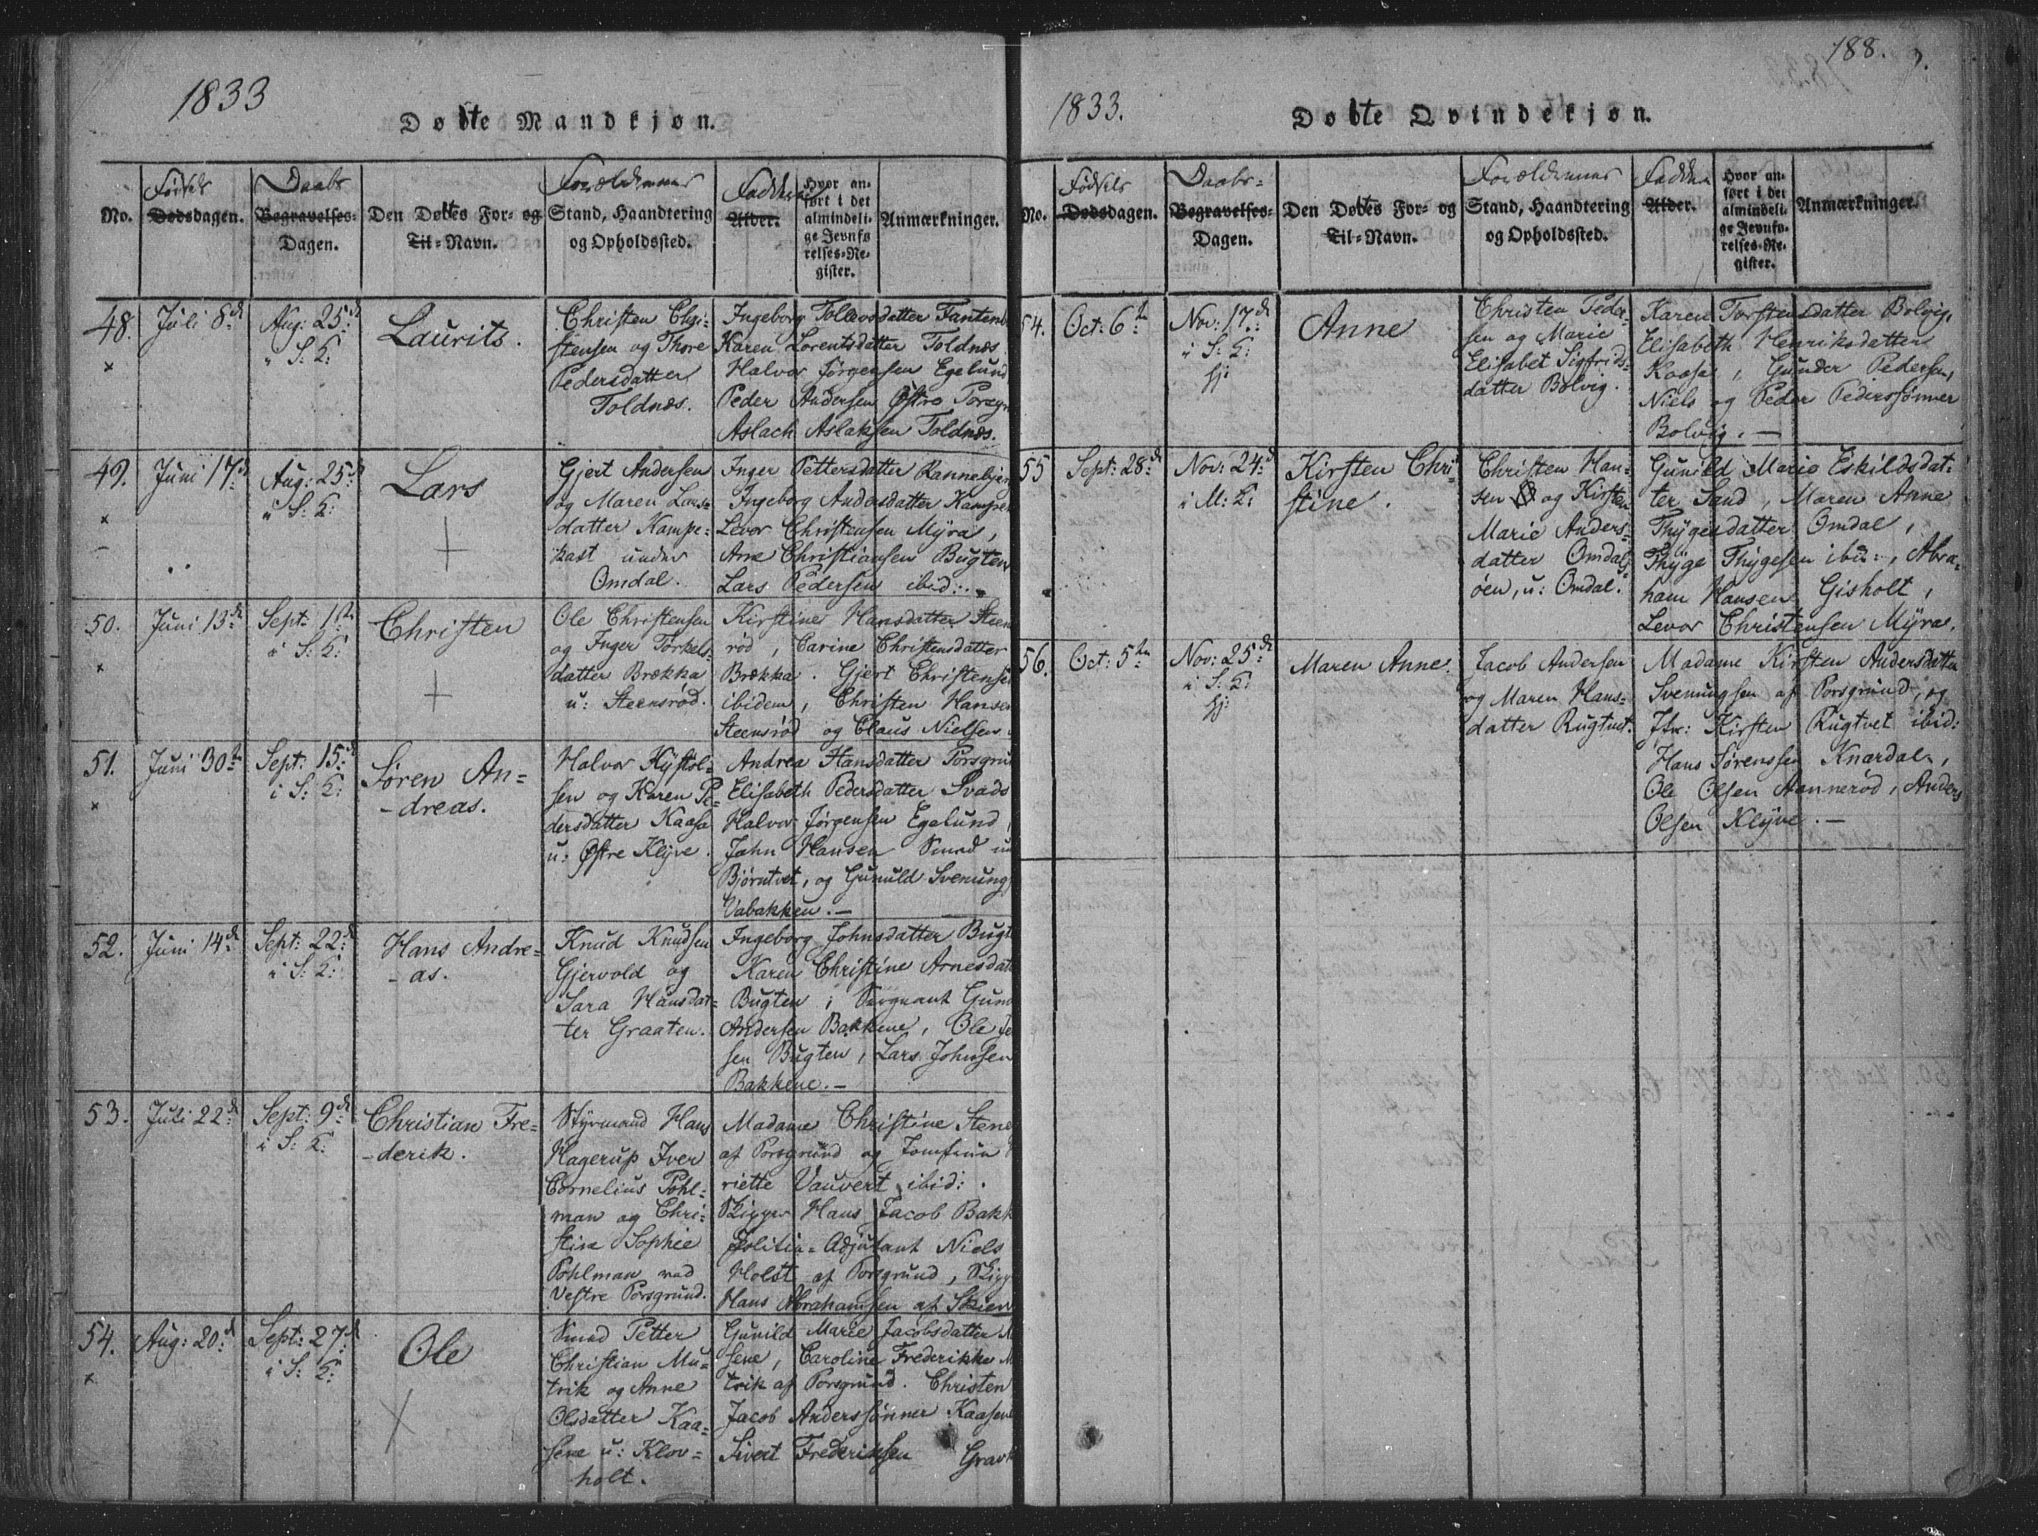 1833
Døbte Mandkjøn.
No.
Fødsels
Dødsdagen.
Daabs
Begravelses-
Dagen.
Den Døbtes For- og
Til-Navn.
Forældrenes
Stand, Haandtering
og Opholdssted.
Faddere
Alder.
Hvor an-
ført i det
almindeli-
ge Jevnfø-
relses-Re-
gister.
Anmærkninger.
48.
Juli 8de
Aug: 25de
i S: K:
Laurits.
Christen Chri-
stensen og Thore
Pedersdatter
Toldnæs.
Ingeborg Tollevsdatter
Karen Lorentsdatter Toldnæs
Halvor Jørgensen Egelund
Peder Andersen Østre
Aslach Aslaksen Toldnæs.
49.
Juni 17de
Aug: 25de
i S: K:
Lars
Gjert Andersen
og Maren Lars-
datter Kampe-
kast under
Omdal.
Inger Pettersdatter
Ingeborg Andersdatter
Levor Christensen Myra,
Arne Christiansen Bugten
Lars Pedersen ibid:.
50.
Juni 13de
Sept: 1ste
i S: K:
Christen
Ole Christensen
og Inger Torkels-
datter Brækka
u: Steensrød.
Kirstine Hansdatter Steens
rød, Carine Christensdatter
Brækka. Gjert Christensen
ibidem, Christen Hansen
Steensrød og Claus Nielsen
51.
Juni 30te
Sept: 15de
i S: K:
Søren An-
-dreas.
Halvor Kystol-
sen og Karen Pe-
dersdatter Kaasa
u: Østre Klyve.
Andrea Hansdatter Porsgru
Elisabeth Pedersdatter
Halvor Jørgensen Egelund,
John Hansen Smed un
Bjørntvet, og Gunuld Svenungs
Vabakken.—
52.
Juni 14de
Sept: 22de
i S: K:
Hans Andre-
-as.
Knud Knudsen
Gjervold og
Sara Hansdat-
ter Graaten.
Ingeborg Johnsdatter Bugt
Karen Christine Arnesdat
Bugten, Sergeant Gun
Andersen Bakkene, Ole
sen Bugten, Lars Johnsen
Bakkene.—
53.
Juli 22de
Sept: 9de
i S: K:
Christian Fre-
-derik.
Styrmand Hans
Hagerup Iver
Cornelius Pohl-
man og Chri-
stine Sophie
Pohlman ved
Vestre Porsgrund.
Madame Christine Stene
af Porsgrund og Jomfrue
riette Vauvert ibid:.
Skipper Hans Jacob Bakk
Politie-Adjutant Niels
Holst af Porsgrund, Skipp
Hans Abrahamsen af Skien
54.
Aug: 20de
Sept: 27de
i S: K:
Ole
Smed Petter
Christian Mu-
trik og Anne
Olsdatter Kaa-
sene u: Klov-
holt.
Gunild Marie Jacobsdatter
sene, Caroline Frederikke M
trik af Porsgrund. Christen
Jacob Anderssønner Kaasene
Sivert Frederiksen Grav
188.
1833.
Døbte Qvindekjøn.
No.
Fødsels
Dødsdagen.
Daabs-
Begravelses-
Dagen.
Den Døbtes For- og
Til-Navn.
Forældrenes
Stand, Haandtering
og Opholdssted.
Faddere
Alder.
Hvor an-
ført i det
almindeli-
ge Jevnfø-
relses-Re-
gister.
Anmærkninger.
54.
Oct: 6te
Nov: 17de
i S: K:
hj:
Anne
Christen Peder-
sen og Marie
Elisabet Sigfrids-
datter Bolvig.
Karen Torstensdatter Bolvig,
Elisabeth Henriksdatter
Kaasa, Gunder Pedersen,
Niels og Peder Pederssønner
Bolvig.—
55
Sept: 28de
Nov: 24de
i M: K:
Kirsten Chri
stine.
Christen Han-
sen og Kirsten
Marie Anders-
datter Omdals-
øen, u: Omdal.
Gunild Marie Eskildsdat-
ter Sand, Maren Anne
Thygesdatter Omdal,
Thyge Thygesen ibid:, Abra-
ham Hansen Gisholt,
Levor Christensen Myra.
56.
Oct: 5te
Nov: 25de
i S: K:
hj:
Maren Anne
Jacob Andersen
og Maren Hans-
datter Rugtvet.
Madame Kirsten Andersdatter
Svenungsen af Porsgrund, og
Jfr: Kirsten Rugtvet ibid:
Hans Sørensen Knardal,
Ole Olsen Aannerød, Anders
Olsen Klyve.—